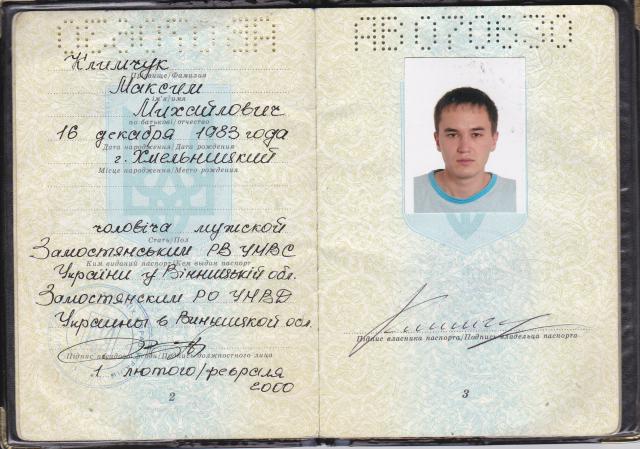 Климчук
Прізвище/Фамилия
Максим
ім'я/имя
Михайлович
по батькові/отчество
16 декабря 1983 года
Дата народження/Дата рождения
г. Хмельницкий
Місце народження/Место рождения
чоловіча мужской
Стать/Пол
Замостянським РВ УМВС
Ким виданий паспорт/Кем выдан паспорт
України у Вінницькій обл.
Замостянским РО УМВД
Украины в Винницкой обл.
Підпис посадової особи/Подпись должностного лица
1 лютого/февраля
2000
2
АВ070630
Підпис власника паспорта/Подпись владельца паспорта
3